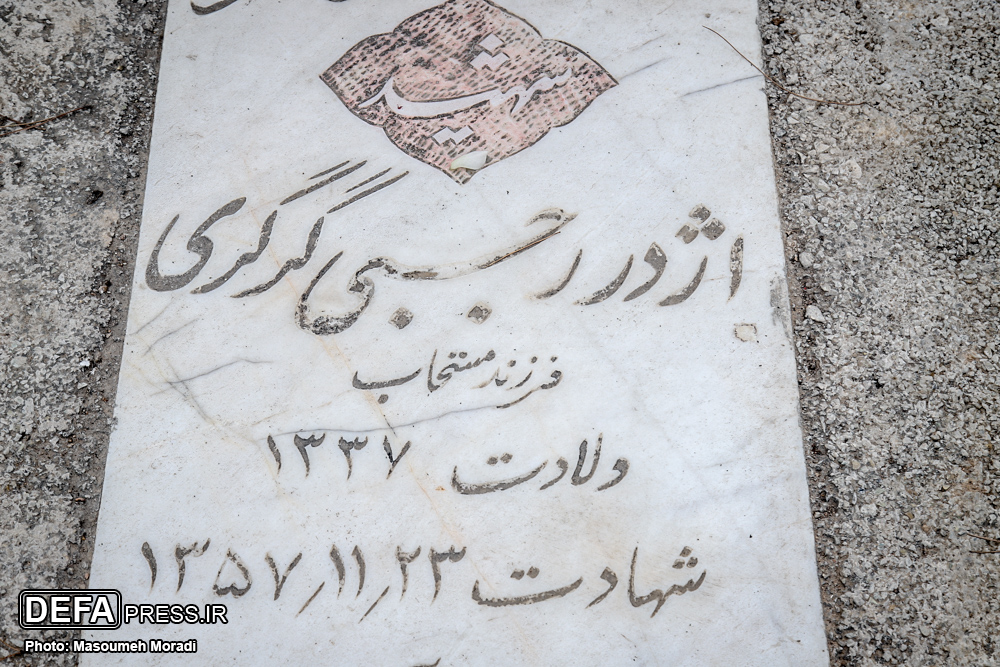 شهید
اژدر رجبی گرگری
فرزند منتخاب
ولادت ۱۳۳۷
شهادت ۱۳۵۷٫۱۱٫۲۳
DEFAPRESS.IR
Photo: Masoumeh Moradi